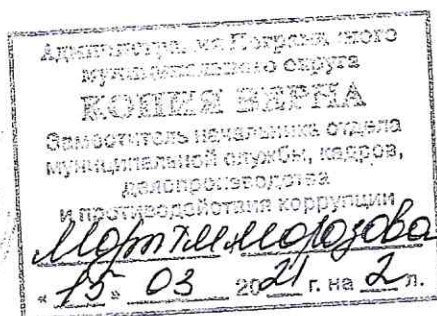 Администрация Пограничного
муниципального округа
КОПИЯ ВЕРНА
Заместитель начальника отдела
муниципальной службы, кадров,
делопроизводства
и противодействия коррупции
Морозова
« 15 » 03 2021 г. на 2 л.